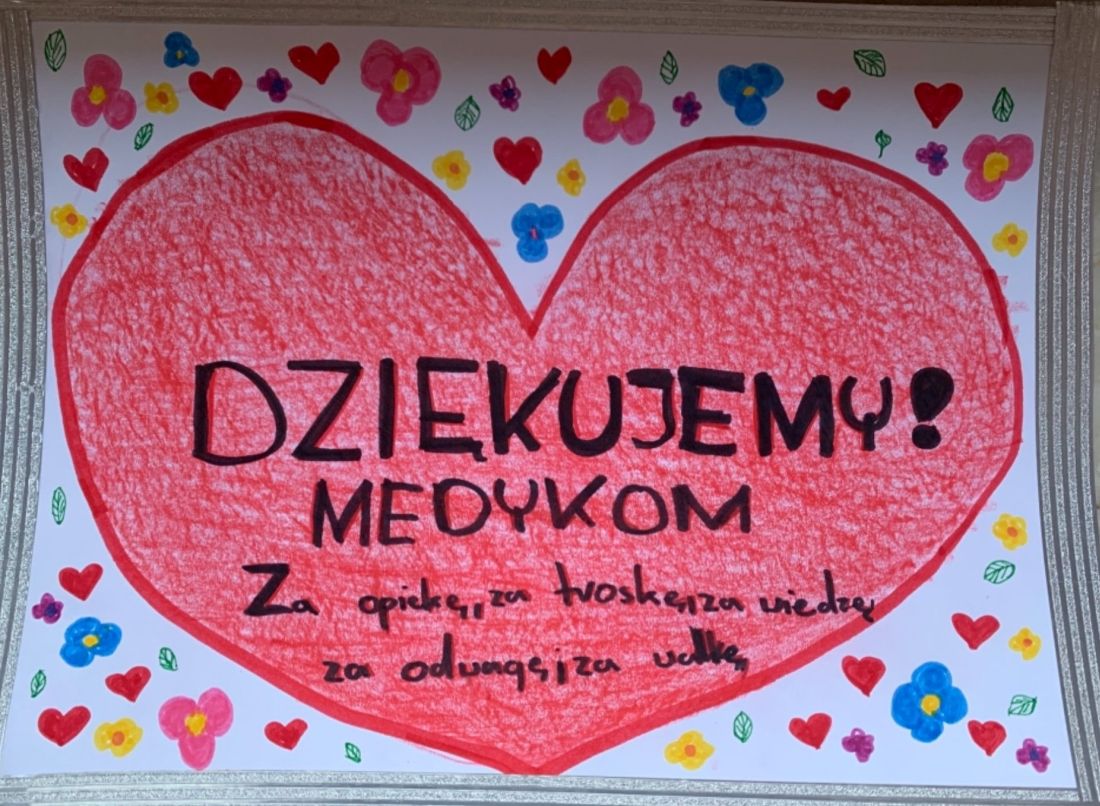 DZIĘKUJEMY!
MEDYKOM
Za opiekę, za troskę, za wiedzę
za odwagę, za walkę,